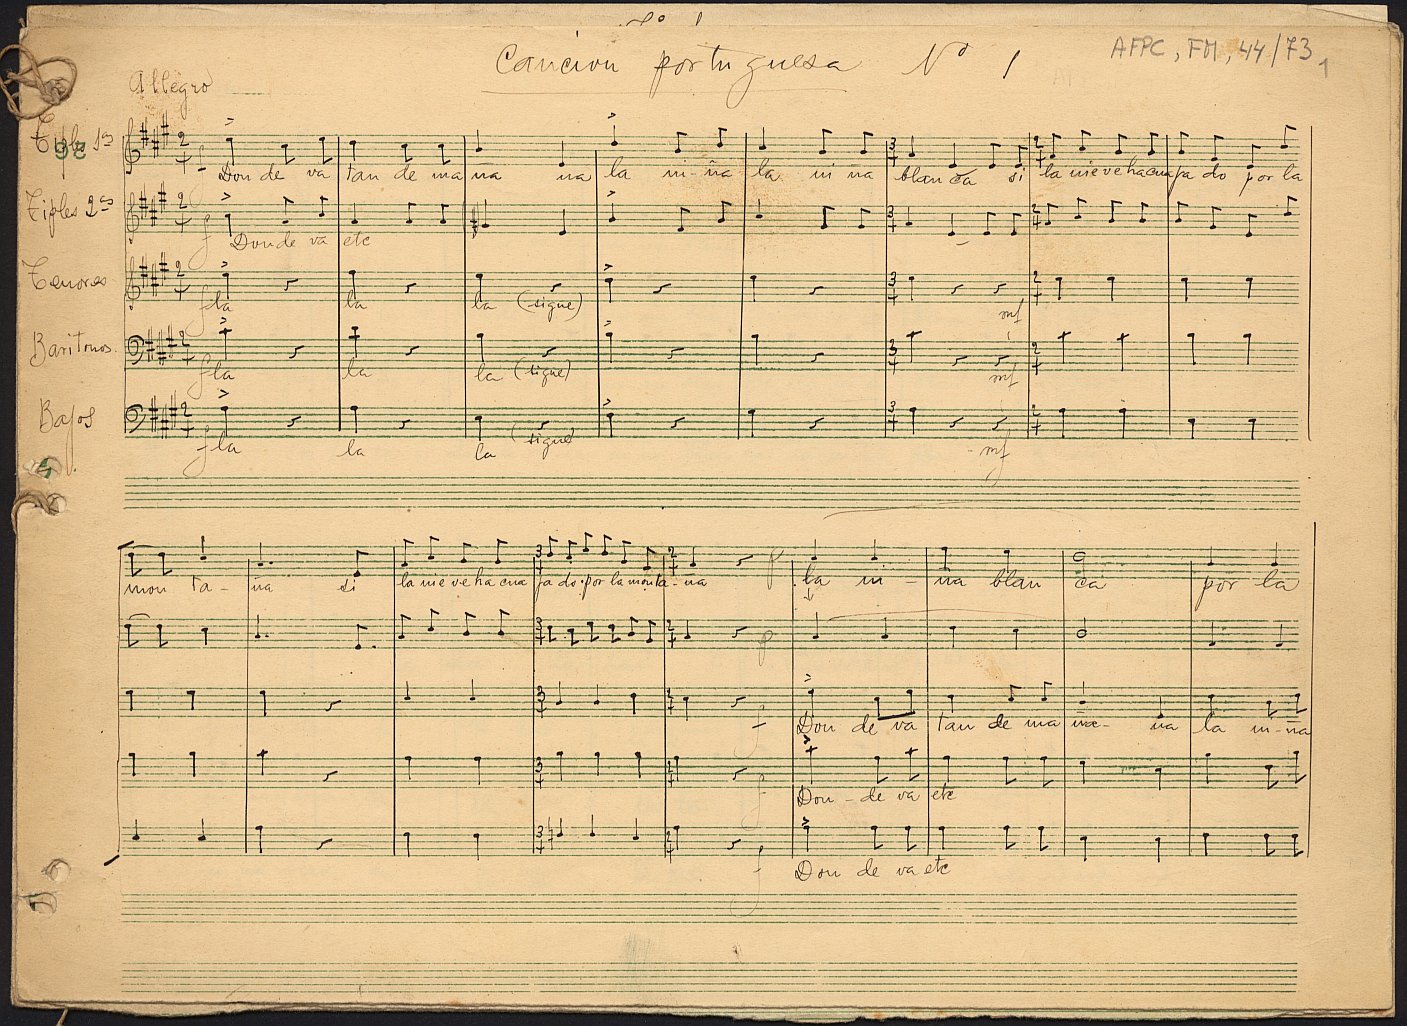 Canción portuguesa Nº 1
AFPC, FM, 44/73
1
Allegro
Tiples 1as
f Don de va tan de ma ña na la ni-ña la ni ña blanca si la nieve ha cua ja do por la
Tiples 2as
f Don de va etc
Tenores
f la la la (sigue) mf
Baritonos.
f la la la (sigue) mf
Bajos
f la la la (sigue) mf
mon ta - ña si la nie ve ha cua ja do por la monta - ña p la ni - ña blan ca por la
p
f Don de va tan de ma ña - na la ni - ña
f Don - de va etc
f Don de va etc